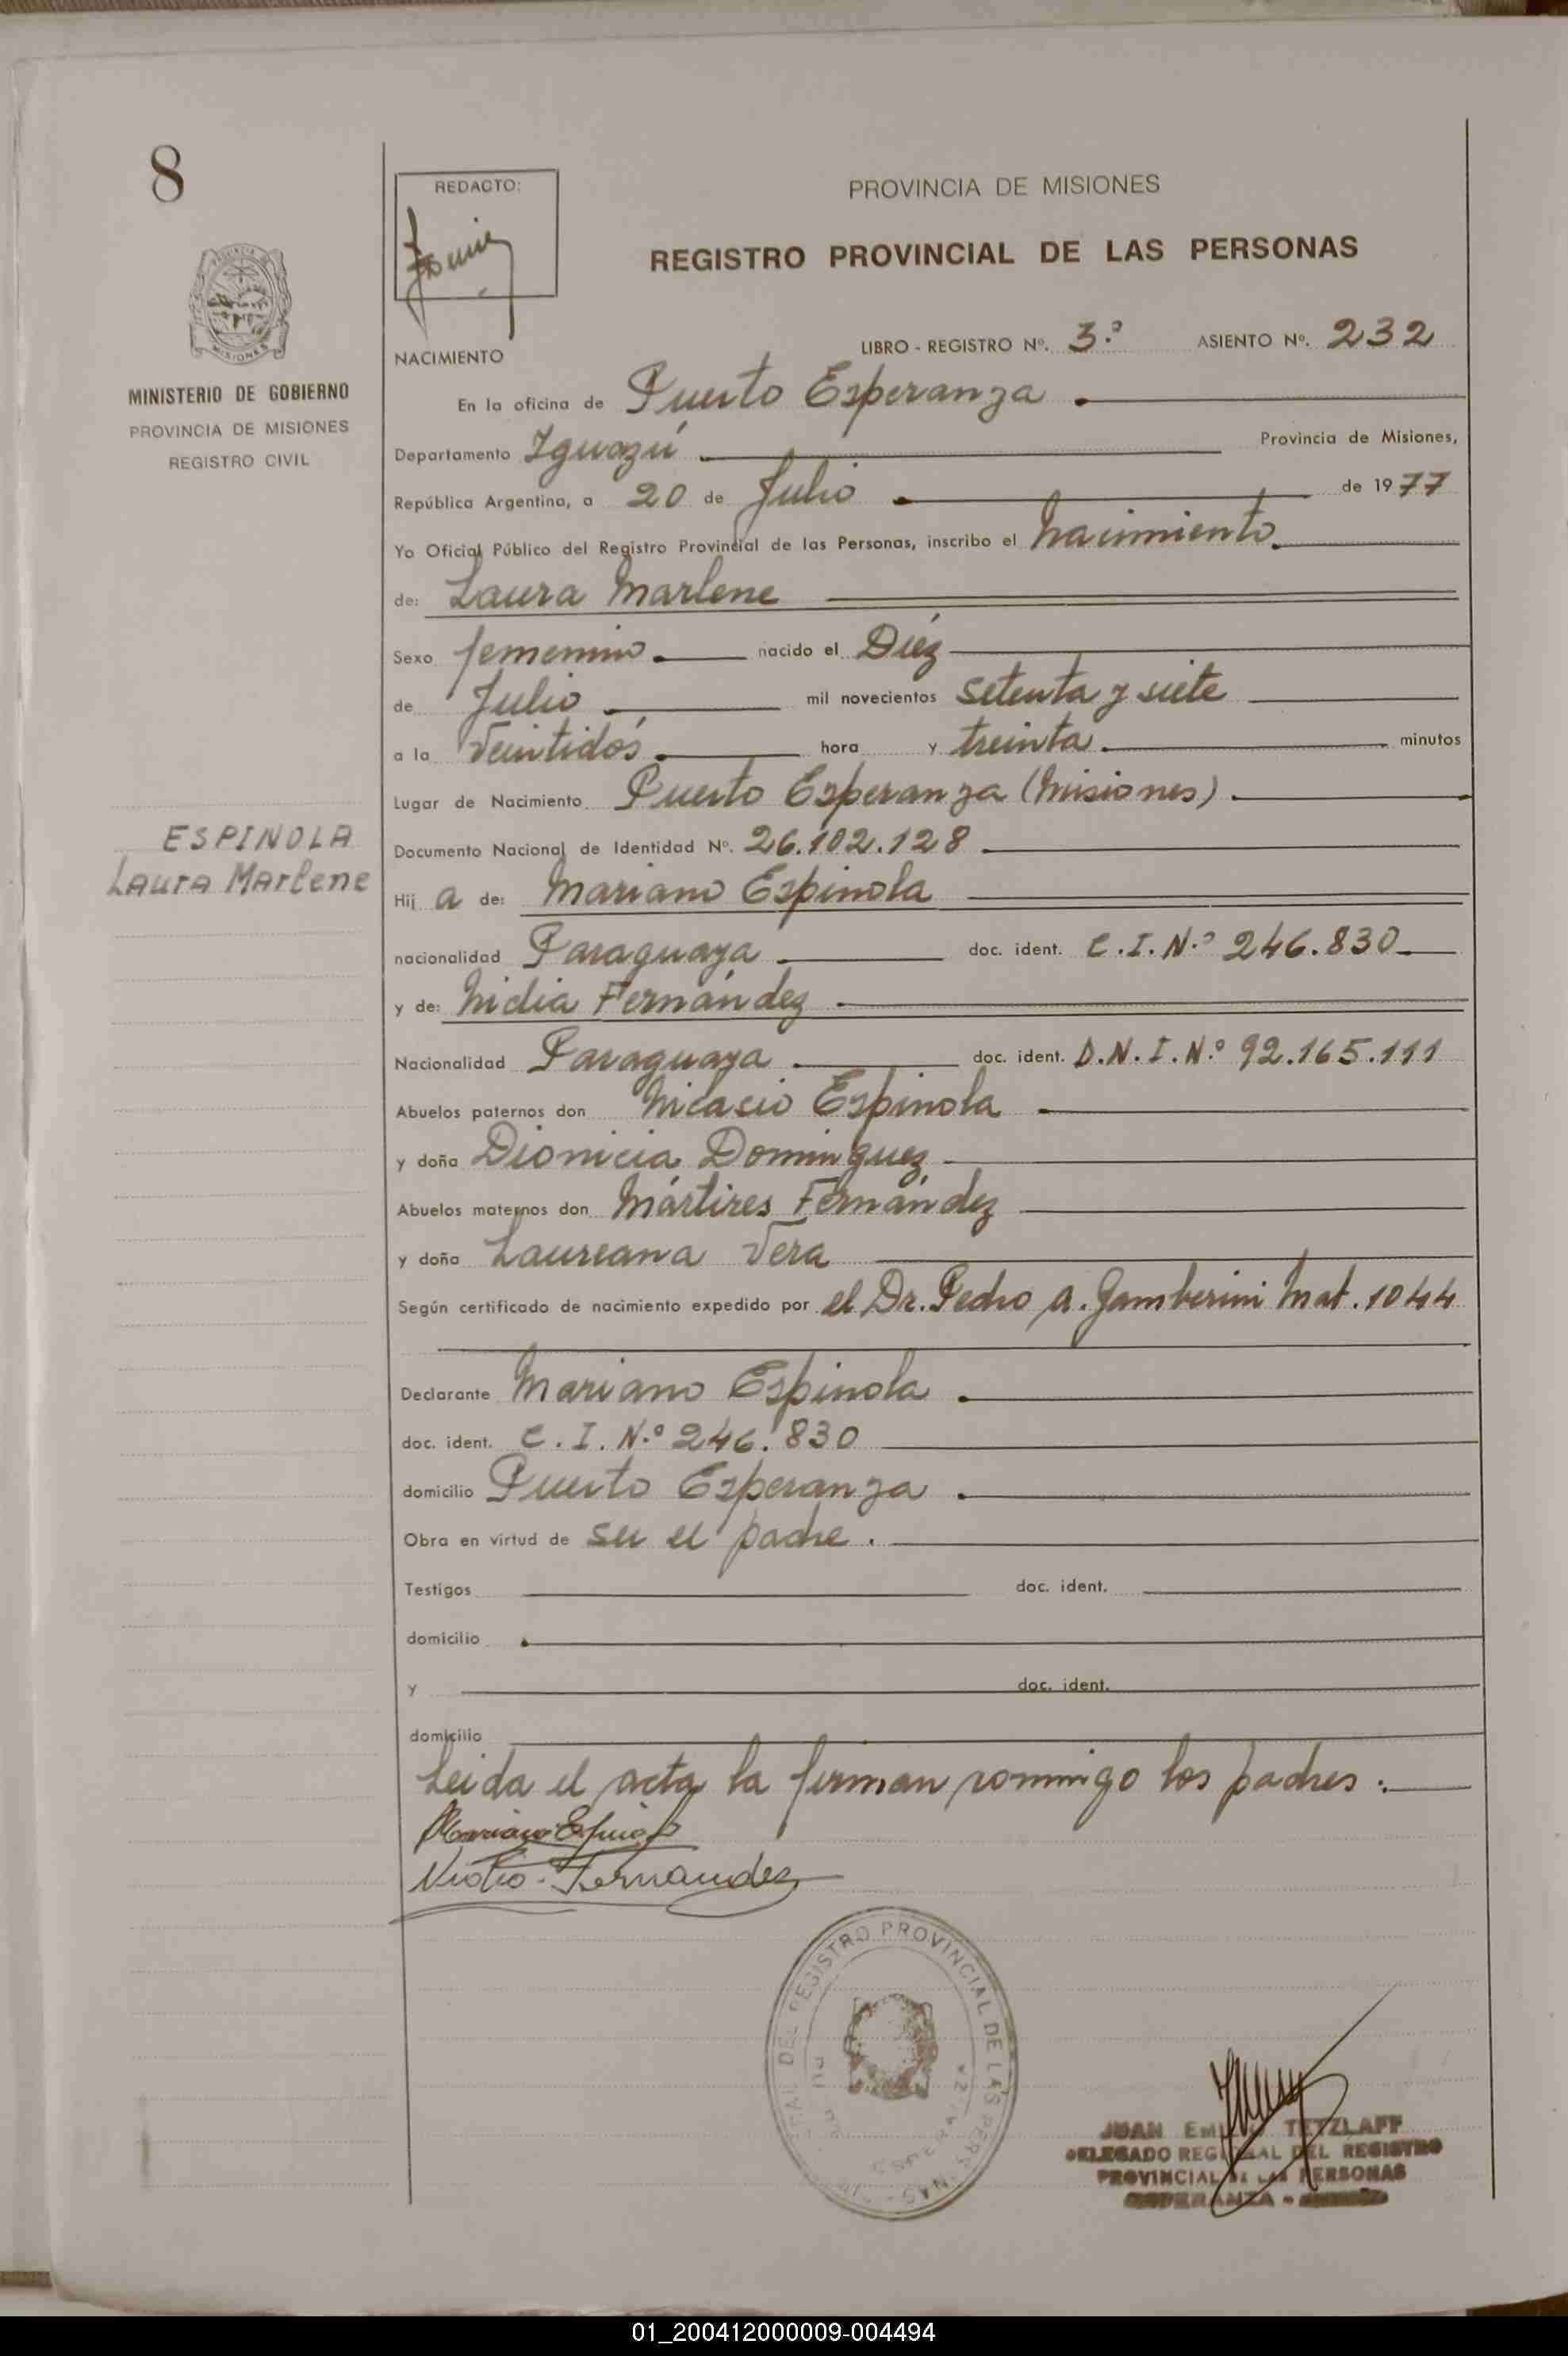 8
REDACTO:
PROVINCIA DE MISIONES
REGISTRO PROVINCIAL DE LAS PERSONAS
MISIONES
MINISTERIO DE GOBIERNO
PROVINCIA DE MISIONES
REGISTRO CIVIL
LIBRO - REGISTRO Nº. 3.º ASIENTO Nº. 232
NACIMIENTO
En la oficina de Puerto Esperanza
Departamento Iguazú Provincia de Misiones,
República Argentina, a 20 de Julio de 1977
Yo Oficial Público del Registro Provincial de las Personas, inscribo el Nacimiento
de: Laura Marlene
Sexo femenino nacido el Diéz
de Julio mil novecientos setenta y siete
a la Veintidós hora y treinta minutos
Lugar de Nacimiento Puerto Esperanza (Misiones)
ESPINOLA
Laura Marlene
Documento Nacional de Identidad Nº. 26.102.128
Hij a de: Mariano Espinola
nacionalidad Paraguaya doc. ident. C.I.N.º 246.830
y de: Nidia Fernández
Nacionalidad Paraguaya doc. ident. D.N.I.N.º 92.165.111
Abuelos paternos don Nicasio Espinola
y doña Dionicia Dominguez
Abuelos maternos don Mártires Fernández
y doña Laureana Vera
Según certificado de nacimiento expedido por el Dr. Pedro A. Gamberini Mat. 1044
Declarante Mariano Espinola
doc. ident. C.I.N.º 246.830
domicilio Puerto Esperanza
Obra en virtud de ser el padre.
Testigos doc. ident.
domicilio
y doc. ident.
domicilio
Leida el acta la firman conmigo los padres.
Mariano Espinola
Nidia Fernandez
DEL REGISTRO PROVINCIAL DE LAS PERSONAS
JUAN EMILIO TETZLAFF
DELEGADO REGIONAL DEL REGISTRO
PROVINCIAL DE LAS PERSONAS
ESPERANZA - MISIONES
01_200412000009-004494